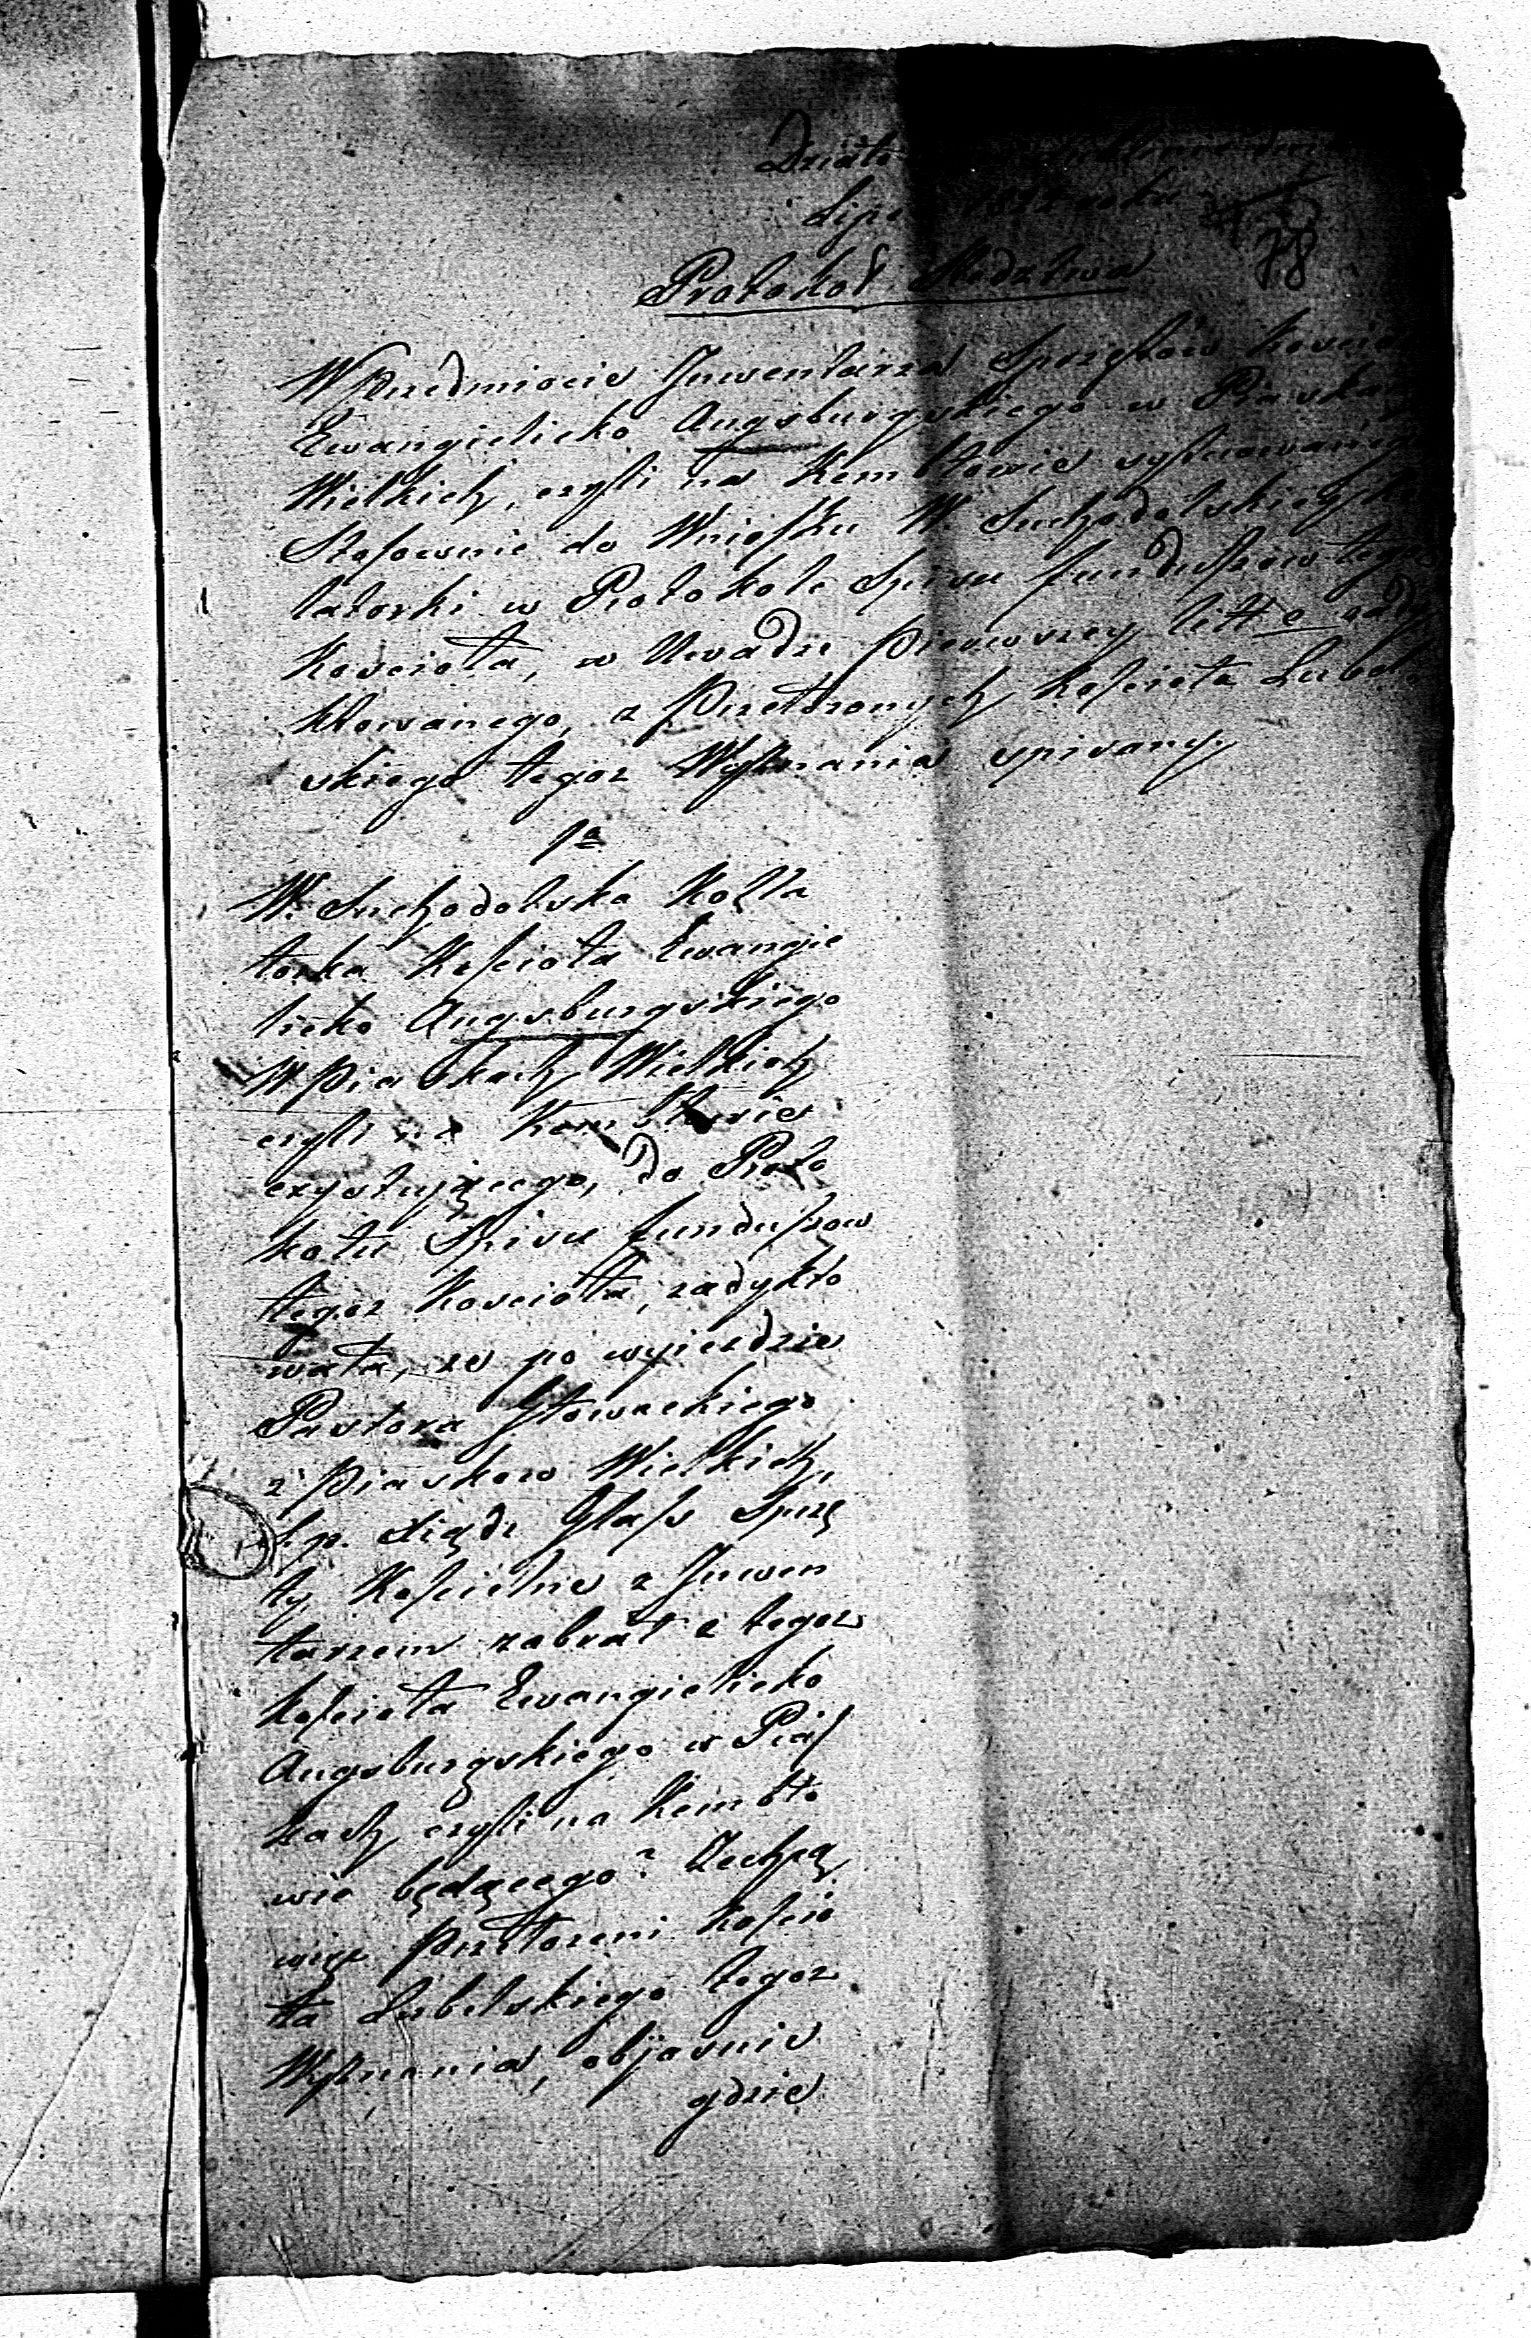 Działo
Lipca 1822 roku
78
Protokoł Sledztwa
W przedmiocie Inwentarza Sprzętow
Ewangielicko Augsburgskiego w Piaskach
Wielkich, czyli na Kembłowie sytuowanego
Stosownie do Wniosku W. Suchodolskiey
latorki w Protokole Spisu funduszow tegoż
Koscioła, w Uwadze pierwszey litt c zady
ktowanego, z Przełożonych Koscioła Lubel
skiego tegoż Wyznania spisany.
1o
W. Suchodolska Kolla
torka Koscioła Ewangie
licko Augsburgskiego
W Piaskach Wielkich
czyli na Kembłowie
exystuiącego, do Proto
kołu Spisu funduszow
tegoż Koscioła, zadykto
wała, ze po wyiezdzie
Pastora Głowackiego
z Piaskow Wielkich,
s. p. Xiądz Glass Sprzę
ty Koscielne z Inwen
tarzem zabrał z tegoż
Koscioła Ewangielicko
Augsburgskiego w Pias
kach czyli na Kembło
wie będącego? Zechcą
więc Przełożeni Koscio
ła Lubelskiego tegoż
Wyznania, objasnic
gdzie